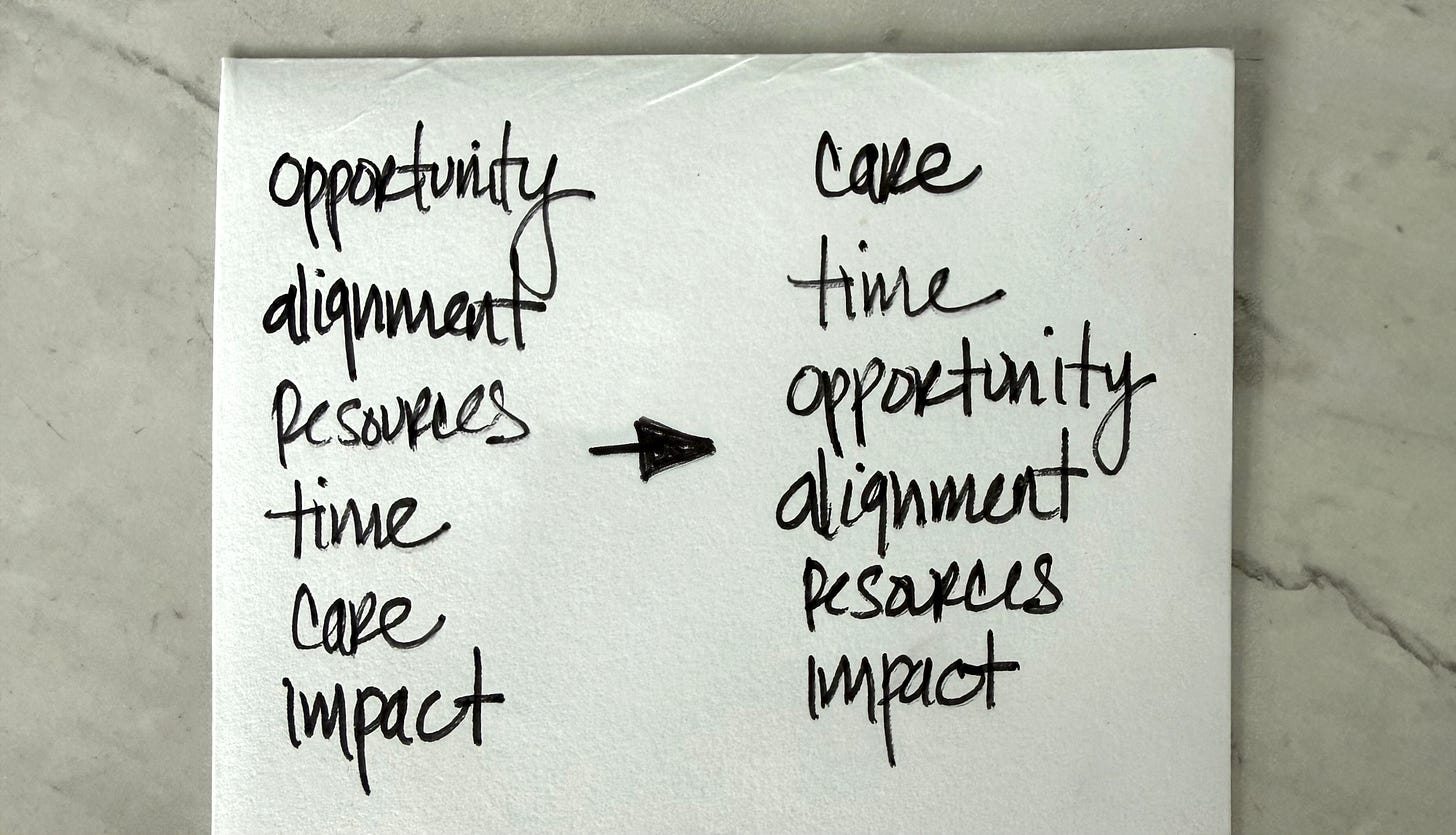 opportunity
alignment
resources
time
care
impact
care
time
opportunity
alignment
resources
impact